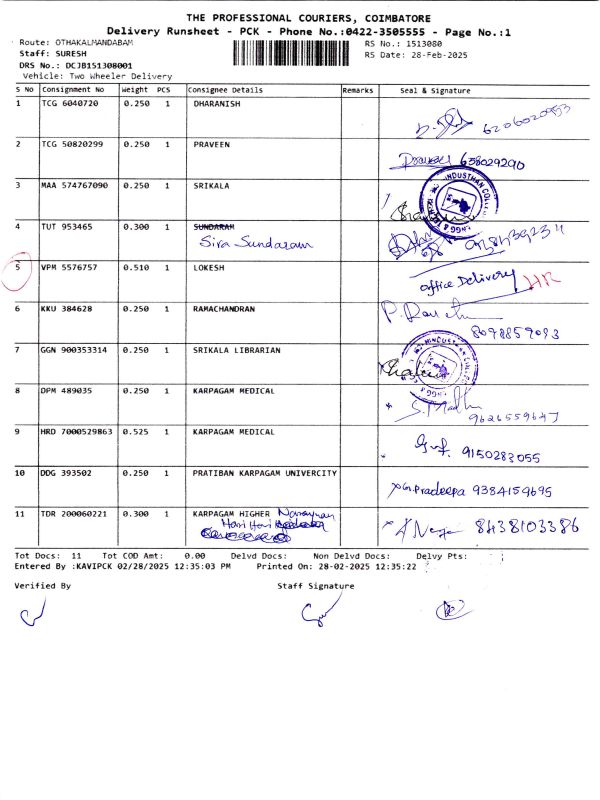 THE PROFESSIONAL COURIERS, COIMBATORE
Delivery Runsheet - PCK - Phone No.:0422-3505555 - Page No.:1
Route: OTHAKALMANDABAM
RS No.: 1513080
Staff: SURESH
RS Date: 28-Feb-2025
DRS No.: DCJB151308001
Vehicle: Two Wheeler Delivery
S No Consignment No Weight PCS Consignee Details Remarks Seal & Signature
1 TCG 6040720 0.250 1 DHARANISH
2 TCG 50820299 0.250 1 PRAVEEN 638029290
3 MAA 574767090 0.250 1 SRIKALA
4 TUT 953465 0.300 1 SUNDARAM
Siva Sundaram
5 VPM 5576757 0.510 1 LOKESH office Delivery HR
6 KKU 384628 0.250 1 RAMACHANDRAN
8098859093
7 GGN 900353314 0.250 1 SRIKALA LIBRARIAN
8 DPM 489035 0.250 1 KARPAGAM MEDICAL
9626559647
9 HRD 7000529863 0.525 1 KARPAGAM MEDICAL
9150283055
10 DDG 393502 0.250 1 PRATIBAN KARPAGAM UNIVERCITY
G.Pradeepa 9384159695
11 TDR 200060221 0.300 1 KARPAGAM HIGHER Narayanan
Hari Hari
8438103386
Tot Docs: 11 Tot COD Amt: 0.00 Delvd Docs: Non Delvd Docs: Delvy Pts:
Entered By :KAVIPCK 02/28/2025 12:35:03 PM Printed On: 28-02-2025 12:35:22
Verified By Staff Signature